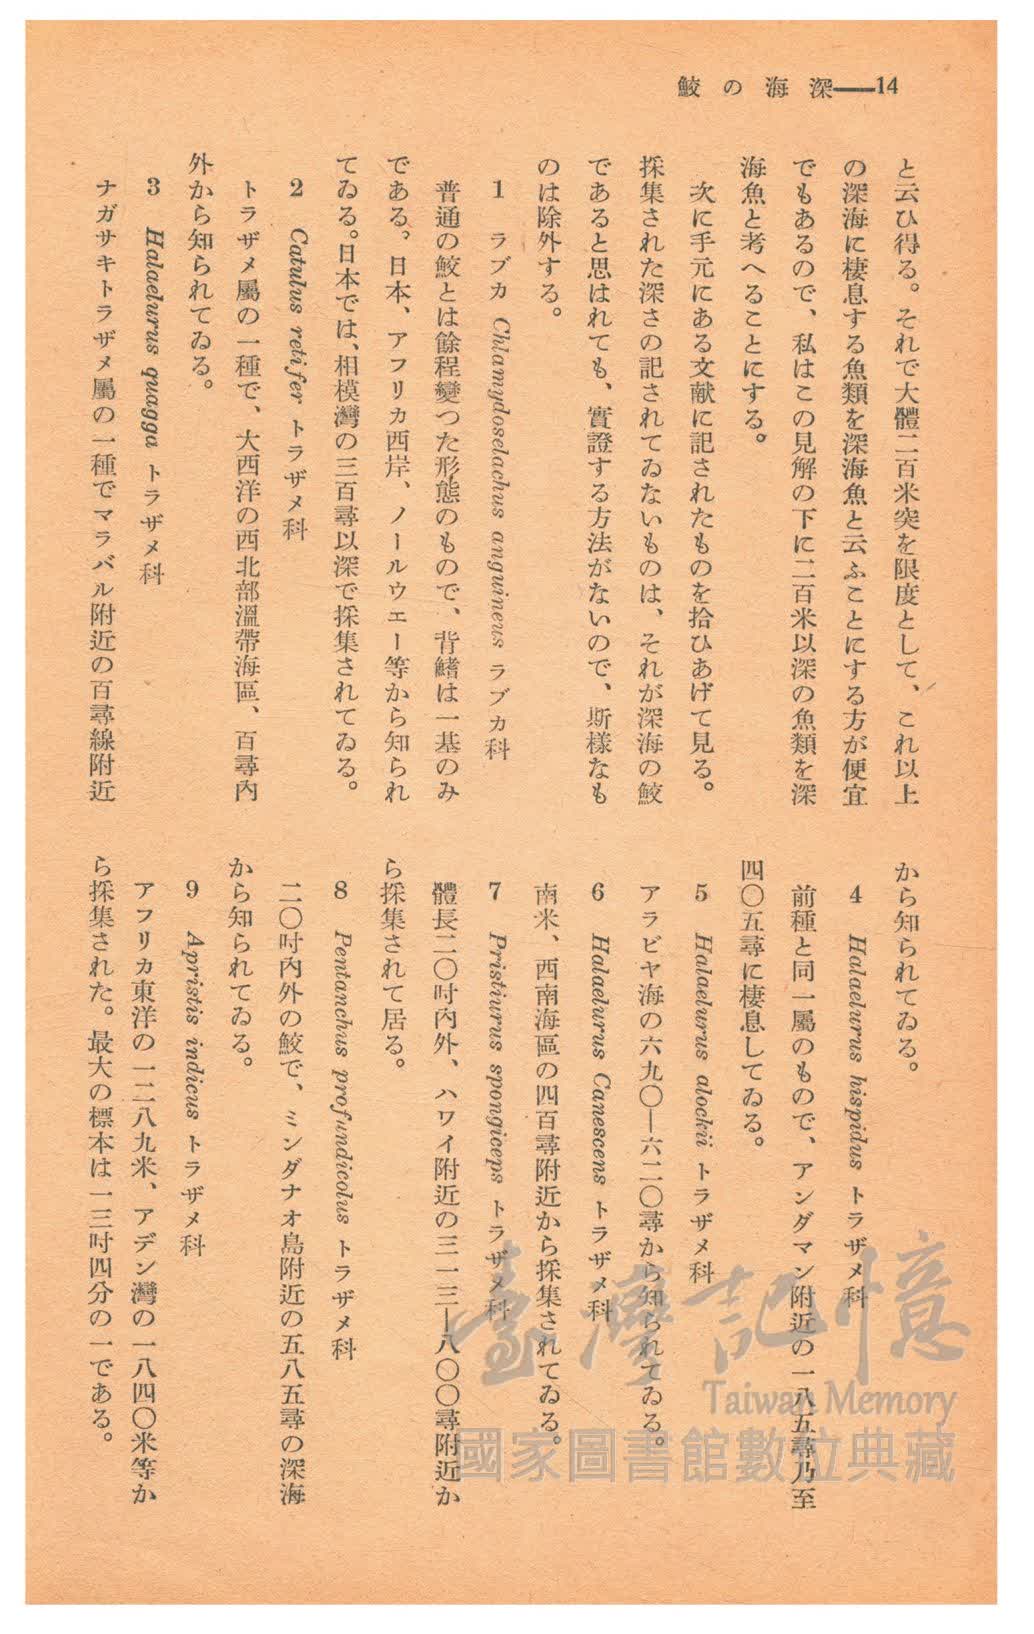 14——深海の鮫
と云ひ得る。それで大體二百米突を限度として、これ以上
の深海に棲息する魚類を深海魚と云ふことにする方が便宜
でもあるので、私はこの見解の下に二百米以深の魚類を深
海魚と考へることにする。
次に手元にある文献に記されたものを拾ひあげて見る。
採集された深さの記されてゐないものは、それが深海の鮫
であると思はれても、實證する方法がないので、斯樣なも
のは除外する。
1 ラブカ Chlamydoselachus anguineus ラブカ科
普通の鮫とは餘程變つた形態のもので、背鰭は一基のみ
である。日本、アフリカ西岸、ノールウエー等から知られ
てゐる。日本では、相模灣の三百尋以深で採集されてゐる。
2 Catulus retifer トラザメ科
トラザメ屬の一種で、大西洋の西北部溫帶海區、百尋內
外から知られてゐる。
3 Halaelurus quagga トラザメ科
ナガサキトラザメ屬の一種でマラバル附近の百尋線附近
から知られてゐる。
4 Halaelurus hispidus トラザメ科
前種と同一屬のもので、アンダマン附近の一八五尋乃至
四〇五尋に棲息してゐる。
5 Halaelurus alockii トラザメ科
アラビヤ海の六九〇—六二〇尋から知られてゐる。
6 Halaelurus Canescens トラザメ科
南米、西南海區の四百尋附近から採集されてゐる。
7 Pristiurus spongiceps トラザメ科
體長二〇吋內外、ハワイ附近の三一三—八〇〇尋附近か
ら採集されて居る。
8 Pentanchus profundicolus トラザメ科
二〇吋內外の鮫で、ミンダナオ島附近の五八五尋の深海
から知られてゐる。
9 Apristis indicus トラザメ科
アフリカ東洋の一二八九米、アデン灣の一八四〇米等か
ら採集された。最大の標本は一三吋四分の一である。
臺灣記憶
Taiwan Memory
國家圖書館數位典藏